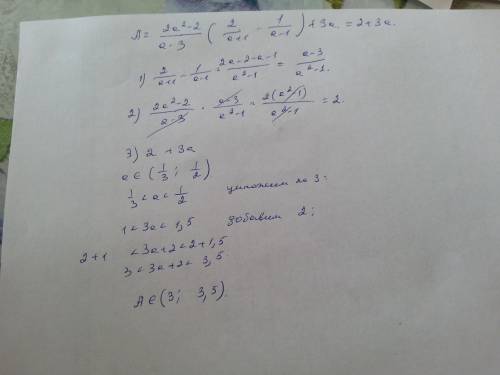 A = \frac{2a²-2}{a-3} ( \frac{2}{a+1} - \frac{1}{a-1} ) + 3a = 2+3a.
1) \frac{2}{a+1} - \frac{1}{a-1} = \frac{2a-2-a-1}{a²-1} = \frac{a-3}{a²-1}.
2) \frac{2a²-2}{a-3} · \frac{a-3}{a²-1} = \frac{2(a²-1)}{a²-1} = 2.
3) 2 + 3a
a ∈ ( \frac{1}{3} ; \frac{1}{2} )
\frac{1}{3} < a < \frac{1}{2} умножим на 3:
1 < 3a < 1,5 добавим 2;
2+1 < 3a+2 < 2+1,5
3 < 3a+2 < 3,5
A ∈ (3; 3,5).